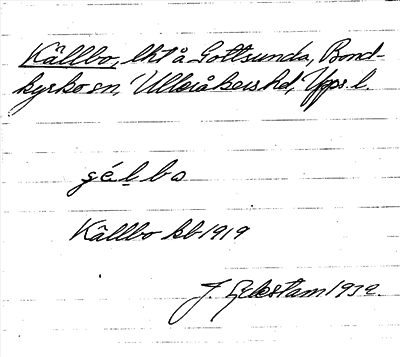 Källbo, lht å Gottsunda, Bond-
kyrko sn, Ulleråkers hd, Upps. l.
gé l b o
Källbo kb 1919
J. Ekestam 1932.